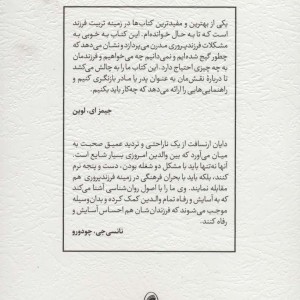 یکی از بهترین و مفیدترین کتاب‌ها در زمینه تربیت فرزند
است که تا به حال خوانده‌ام. این کتاب به خوبی به
مشکلات فرزندپروری مدرن می‌پردازد و نشان می‌دهد که
چطور گیج شده‌ایم و نمی‌دانیم چه می‌خواهیم و فرزندمان
به چه چیزی احتیاج دارد. این کتاب ما را به چالش می‌کشد
تا دربارهٔ نقش‌مان به عنوان پدر یا مادر بازنگری کنیم و
راهنمایی‌هایی را ارائه می‌دهد که چه‌کار باید بکنیم.
جیمز ای. لوین
دایان ارنسافت از یک ناراحتی و تردید عمیق صحبت به
میان می‌آورد که بین والدین امروزی بسیار شایع است.
آنها نه‌تنها باید با مشکل دو شغله بودن، دست و پنجه نرم
کنند، بلکه باید با بحران فرهنگی در زمینه فرزندپروری هم
مقابله نمایند. وی ما را با اصول روان‌شناسی آشنا می‌کند
که به آسایش و رفاه تمام والدین کمک کرده و بدان‌وسیله
موجب می‌شوند که فرزندان‌شان هم احساس آسایش و
رفاه کنند.
نانسی جی. چودورو